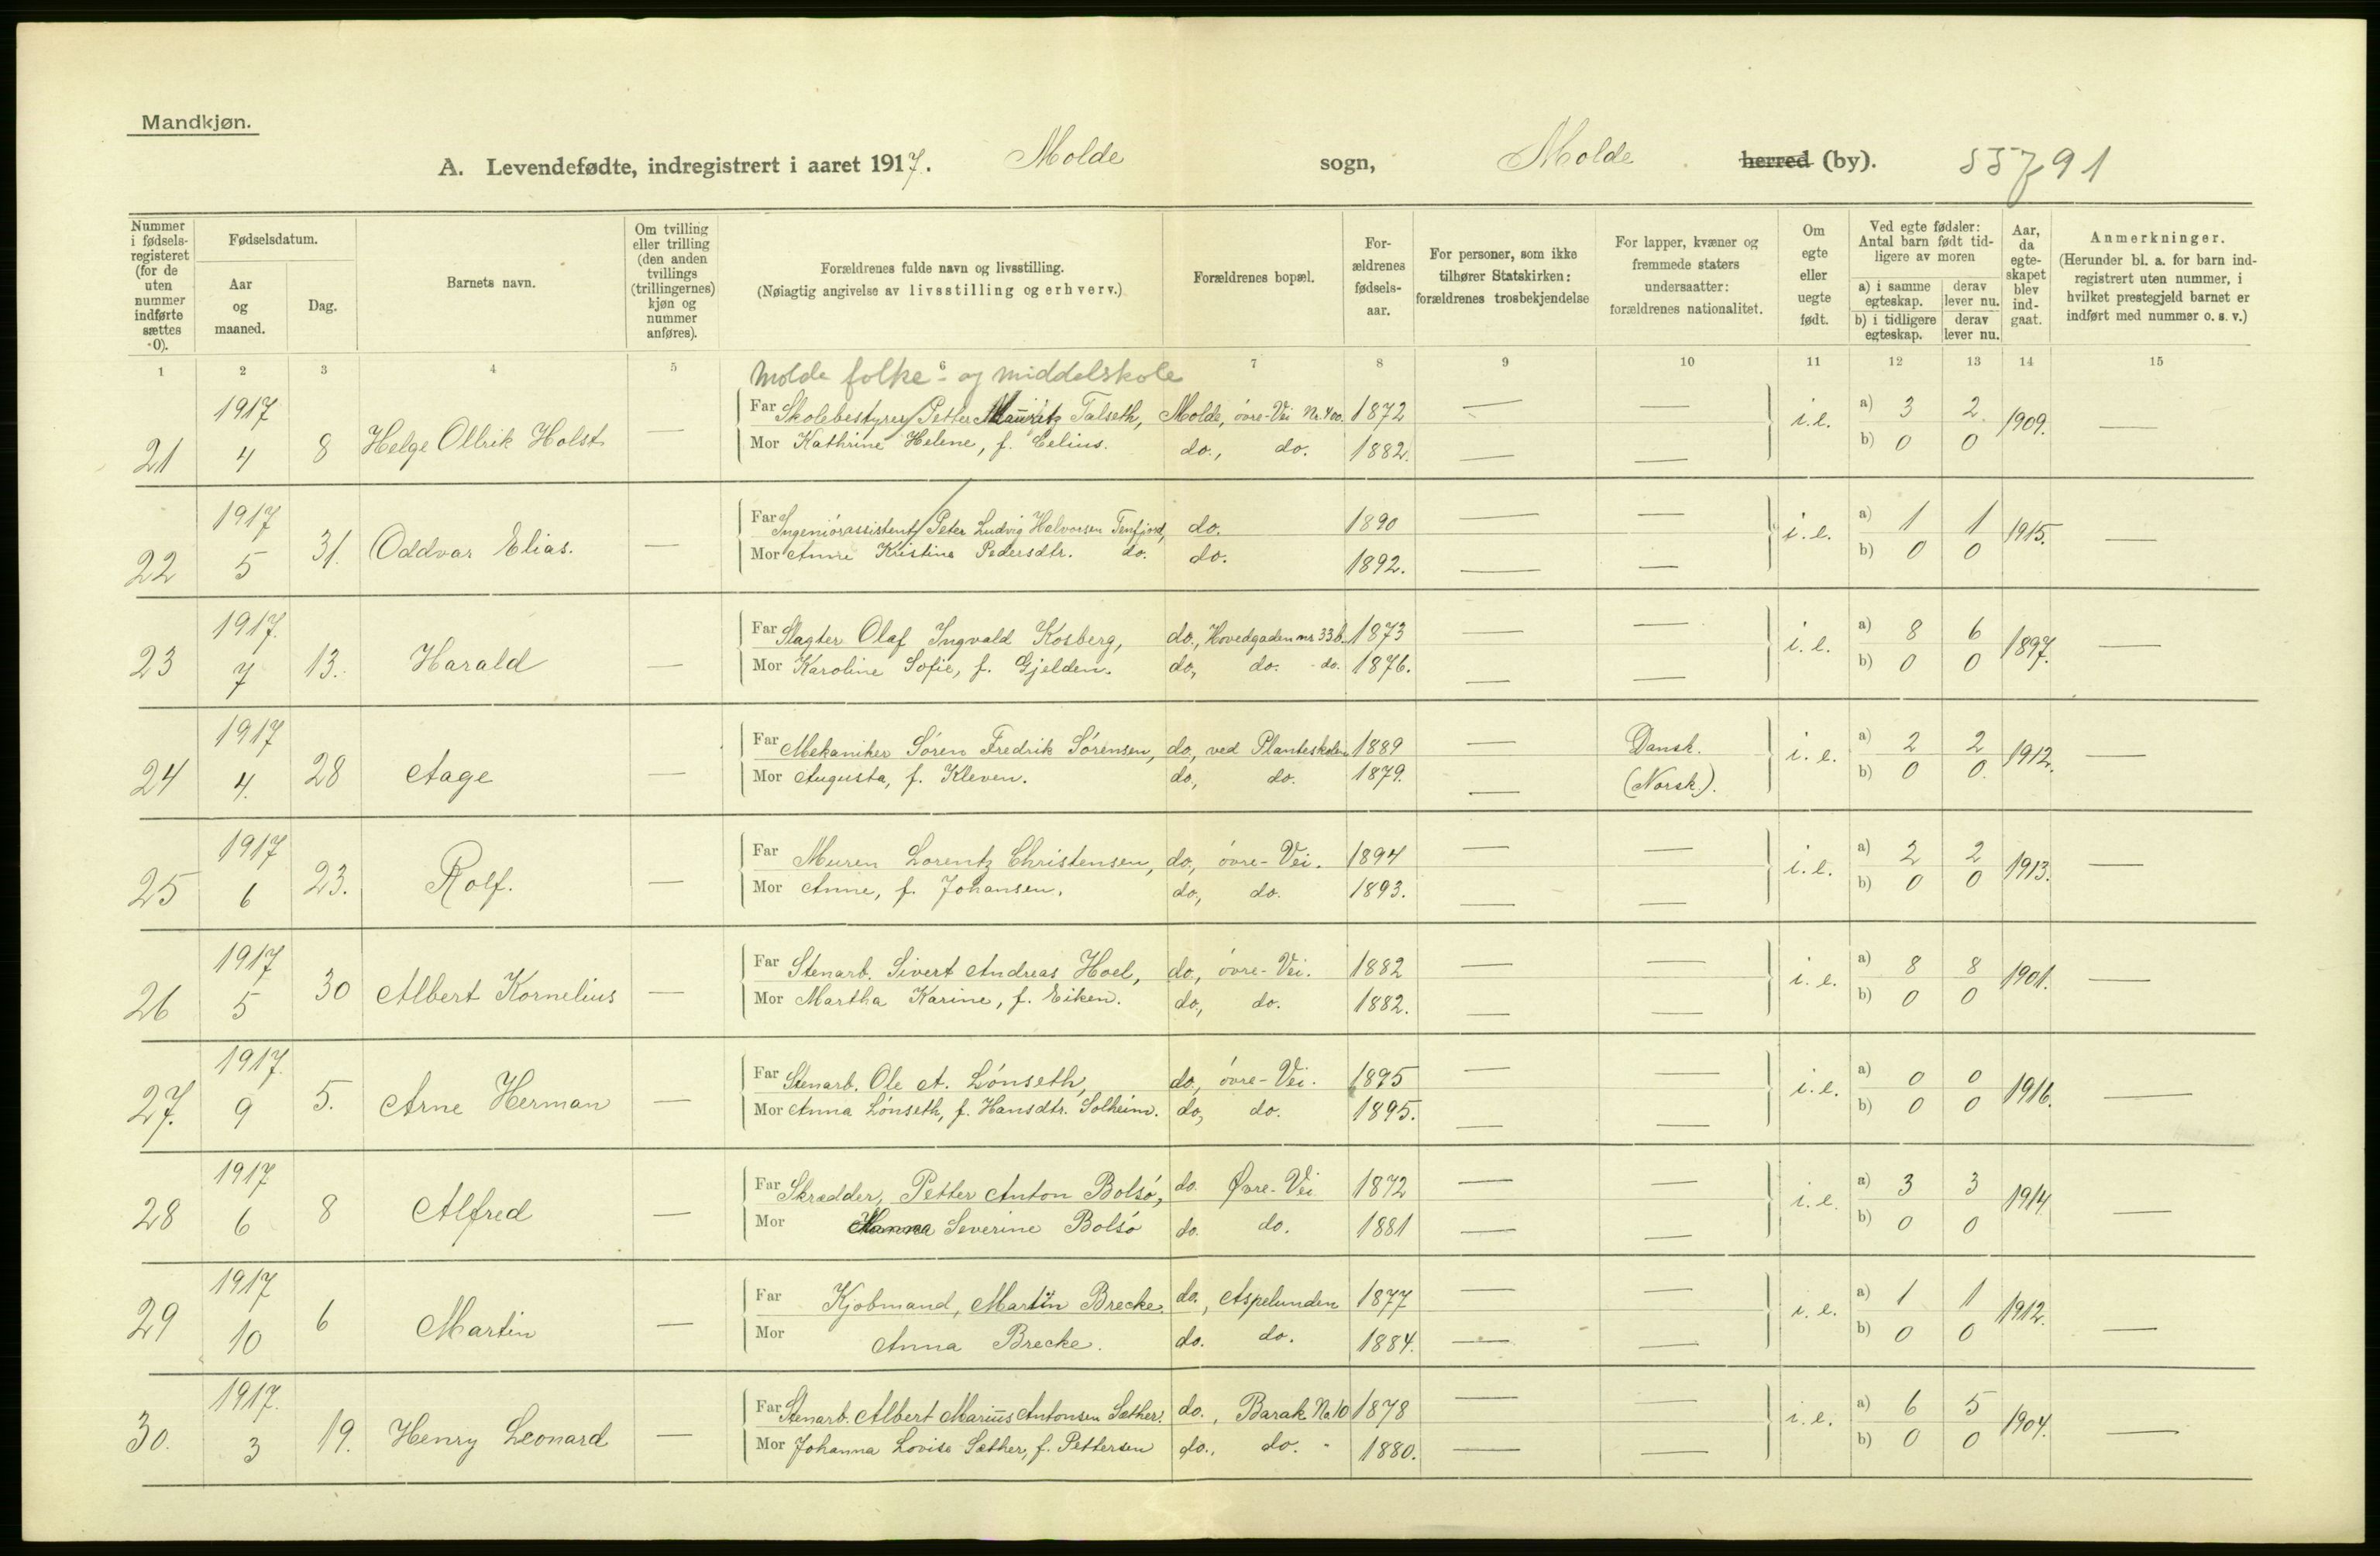 Mandkjøn.
A. Levendefødte, indregistrert i aaret 1917. Molde sogn, Molde herred (by). 55791
Nummer i fødselsregisteret (for de uten nummer indførte sættes 0).
Fødselsdatum.
Aar og maaned.
Dag.
Barnets navn.
Om tvilling eller trilling (den anden tvillings (trillingernes) kjøn og nummer anføres).
Forældrenes fulde navn og livsstilling.
(Nøiagtig angivelse av livsstilling og erhverv.)
Forældrenes bopæl.
Forældrenes fødselsaar.
For personer, som ikke tilhører Statskirken: forældrenes trosbekjendelse
For lapper, kvæner og fremmede staters undersaatter: forældrenes nationalitet.
Om egte eller uegte født.
Ved egte fødsler: Antal barn født tidligere av moren
a) i samme egteskap. derav lever nu.
b) i tidligere egteskap. derav lever nu.
Aar, da egteskapet blev indgaat.
Anmerkninger.
(Herunder bl. a. for barn indregistrert uten nummer, i hvilket prestegjeld barnet er indført med nummer o. s. v.)
1 2 3 4 5 6 7 8 9 10 11 12 13 14 15
Molde folke- og middelskole
21 1917 4 8 Helge Ollrik Holst —
Far Skolebestyrer Petter Mauritz Talseth, Molde, övre-Vei Nr. 400. 1872 — — i. e. a) 3 2 1909. —
Mor Kathrine Helene, f. Eelius. do., do. 1882. — — b) 0 0
22 1917 5 31. Oddvar Elias. —
Far Ingeniörassistent Peter Ludvig Halvorsen Tenfjord, do. 1890 — — i. e. a) 1 1 1915. —
Mor Anne Kristine Pedersdtr. do. do. 1892. — — b) 0 0
23 1917. 7 13. Harald —
Far Slagter Olaf Ingvald Kosberg, do., Hovedgaden nr 33b. 1873 — — i. e. a) 8 6 1897. —
Mor Karoline Sofie, f. Gjelden. do, do. do. 1876. — — b) 0 0
24 1917 4. 28 Aage —
Far Mekaniker Sören Fredrik Sörensen, do, ved Planteskolen 1889 — Dansk. i. e. a) 2 2 1912. —
Mor Augusta, f. Kleven. do, do. 1879. — (Norsk). b) 0 0.
25 1917 6 23. Rolf. —
Far Muren Lorentz Christensen, do, övre-Vei. 1894 — — i. e. a) 2 2 1913. —
Mor Anne, f. Johansen. do, do. 1893. — — b) 0 0
26 1917 5 30 Albert Kornelius —
Far Stenarb. Sivert Andreas Hoel, do, övre-Vei. 1882 — — i. e. a) 8 8 1901. —
Mor Martha Karine, f. Eiken. do, do. 1882. — — b) 0 0
27. 1917. 9 5. Arne Herman —
Far Stenarb. Ole A. Lönseth, do, övre-Vei. 1895 — — i. e. a) 0 0 1916. —
Mor Anna Lönseth, f. Hansdtr. Solheim. do, do. 1895. — — b) 0 0
28 1917 6 8 Alfred —
Far Skrædder, Petter Anton Bolsö, do. Øvre-Vei 1872 — — i. e. a) 3 3 1914 —
Mor Severine Bolsö do. do. 1881 — — b) 0 0
29 1917 10 6 Martin —
Far Kjøbmand, Martin Brecke. do, Aspelunden 1877 — — i. e. a) 1 1 1912. —
Mor Anna Brecke. do. do. 1884. — — b) 0 0
30. 1917. 3 19. Henry Leonard —
Far Stenarb. Albert Marius Antonsen Sæther. do., Barak No 10 1878 — — i. e. a) 6 5 1904. —
Mor Johanna Lovise Sæther, f. Pettersen do., do. 1880. — — b) 0 0